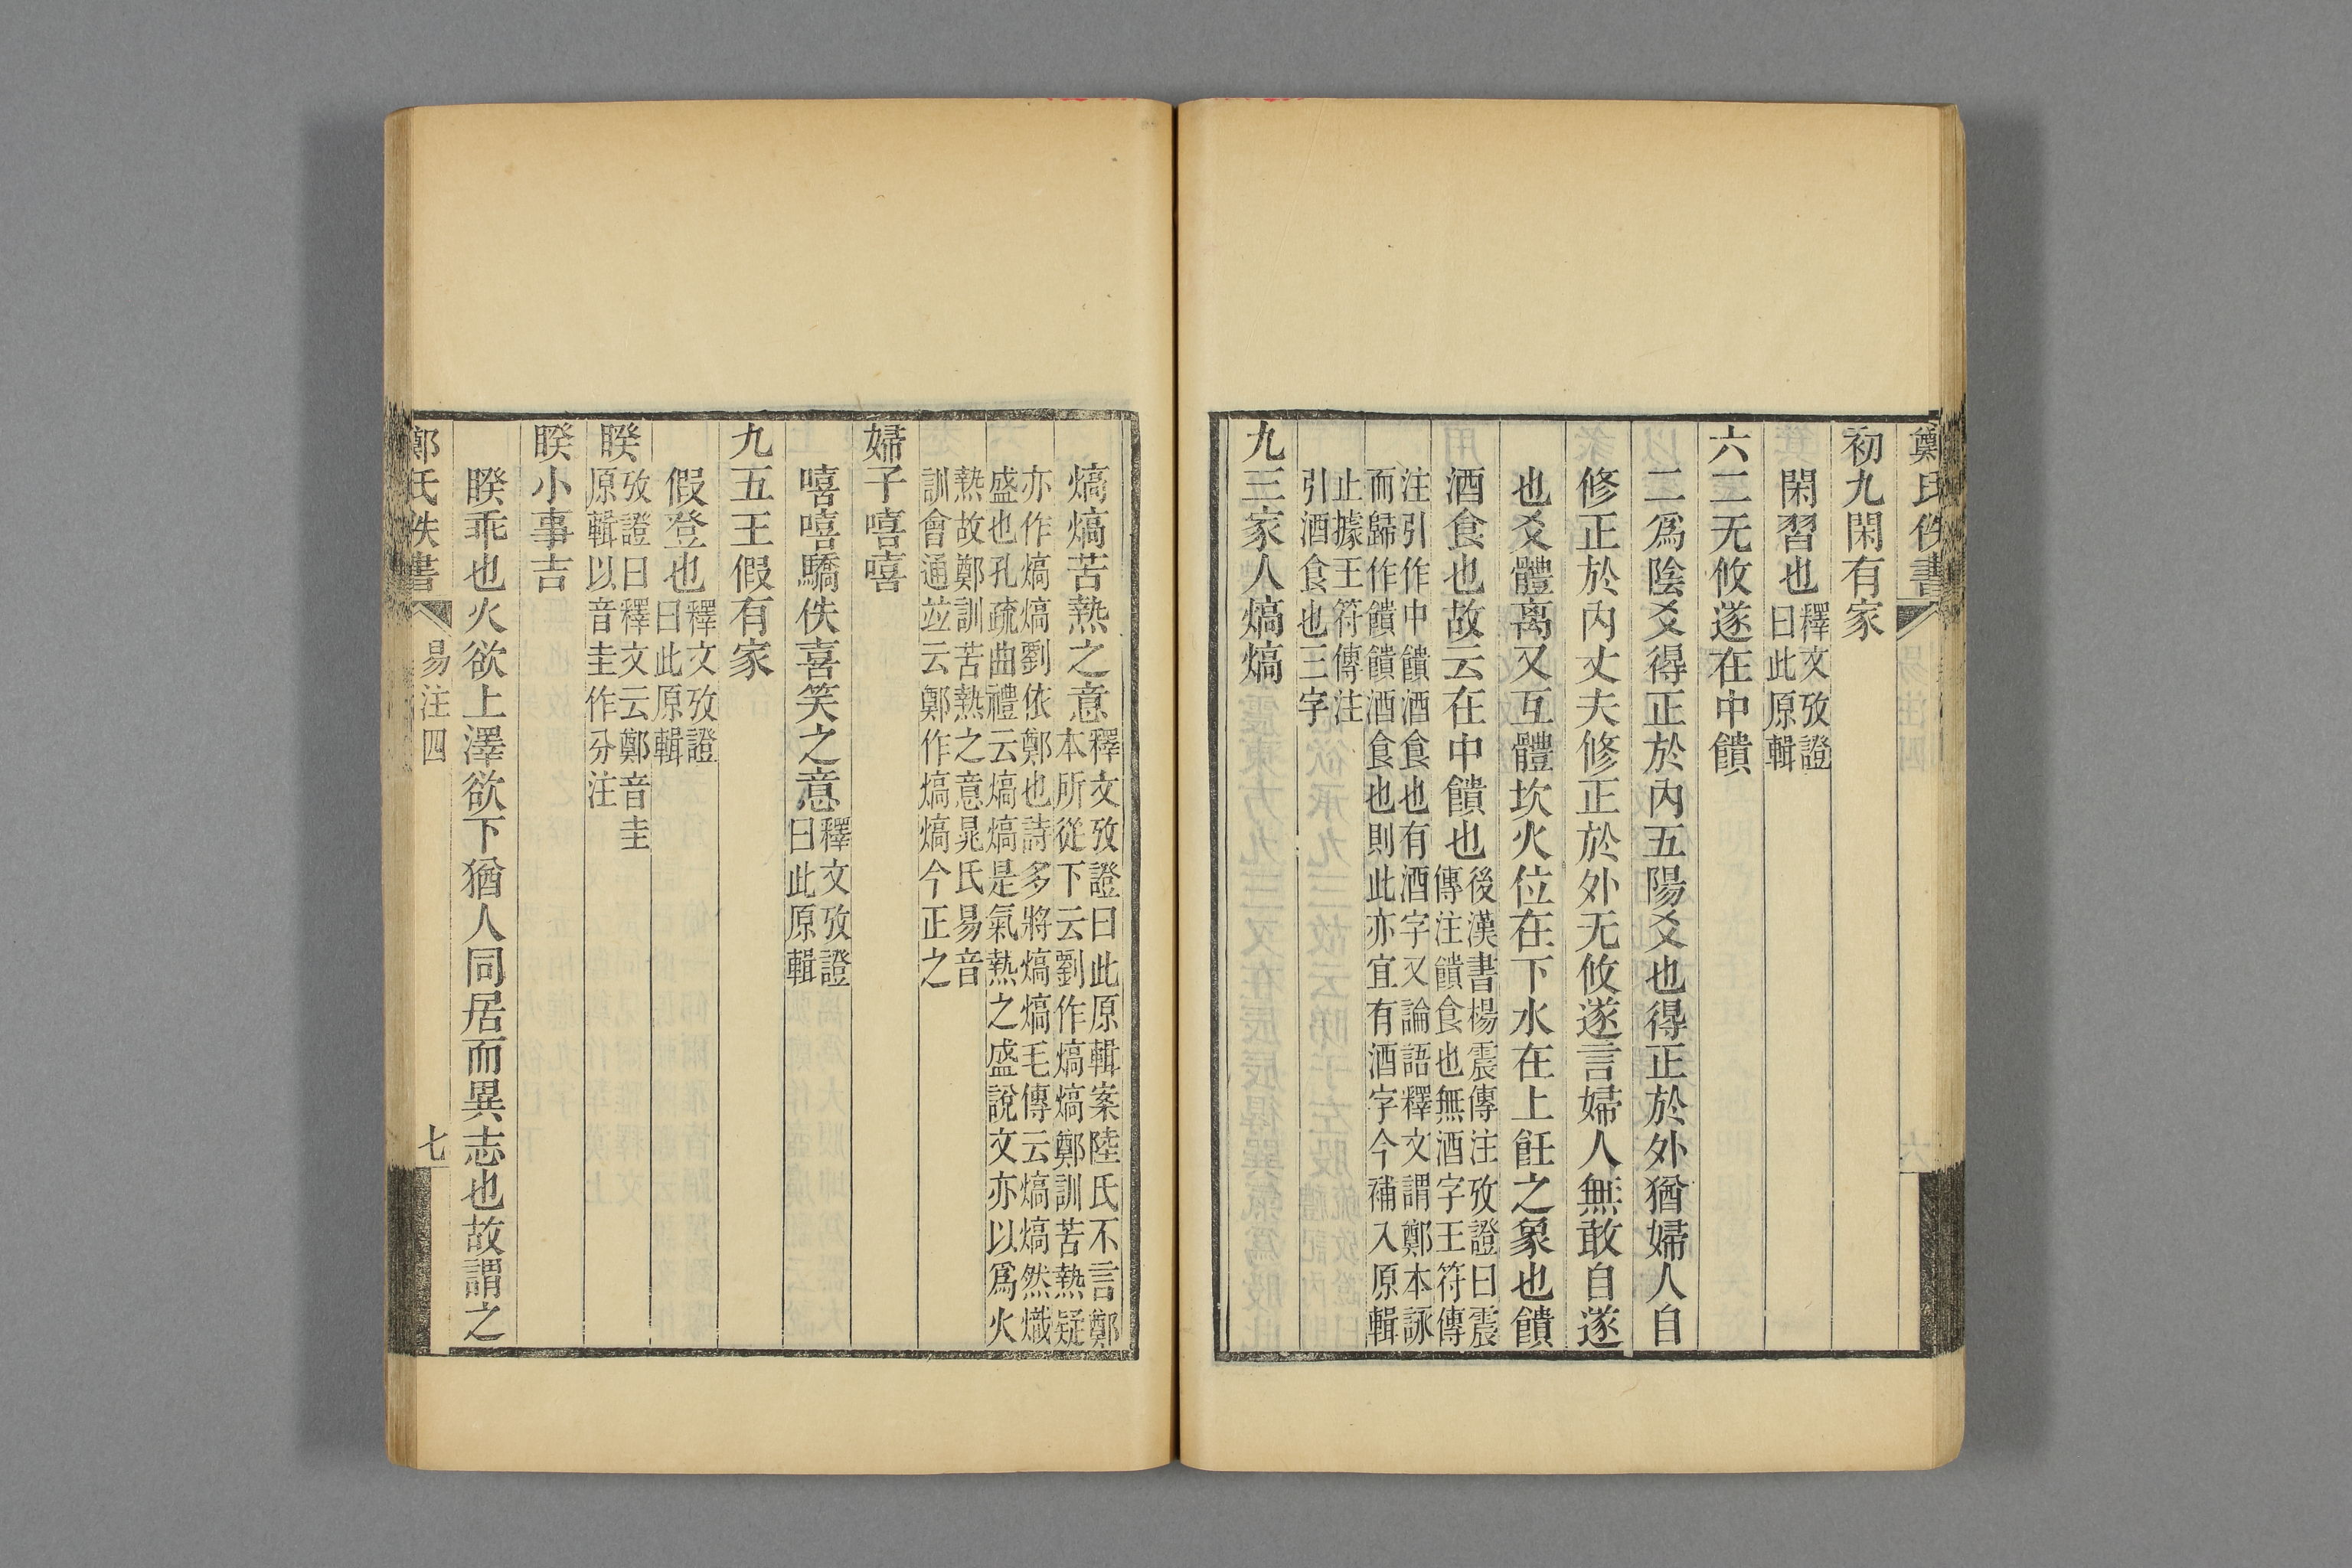 鄭氏佚書
初九閑有家
閑習也釋文攷證
曰此原輯
六二无攸遂在中饋
二爲陰爻得正於內五陽爻也得正於外猶婦人自
修正於內丈夫修正於外无攸遂言婦人無敢自遂
也爻體离又互體坎火位在下水在上飪之象也饋
酒食也故云在中饋也後漢書楊震傳注攷證曰震
傳注饋食也無酒字王符傳
注引作中饋酒食也有酒字又論語釋文謂鄭本詠
而歸作饋饋酒食也則此亦宜有酒字今補入原輯
止據王符傳注
引酒食也三字
九三家人熇熇
熇熇苦熱之意釋文攷證曰此原輯案陸氏不言鄭
本所從下云劉作熇熇鄭訓苦熱疑
亦作熇熇劉依鄭也詩多將熇熇毛傳云熇熇然熾
盛也孔疏曲禮云熇熇是氣熱之盛說文亦以爲火
熱故鄭訓苦熱之意晁氏易音
訓會通竝云鄭作熇熇今正之
婦子嘻嘻
嘻嘻驕佚喜笑之意釋文攷證
曰此原輯
九五王假有家
假登也釋文攷證
曰此原輯
睽攷證曰釋文云鄭音圭
原輯以音圭作分注
睽小事吉
睽乖也火欲上澤欲下猶人同居而異志也故謂之
鄭氏佚書 易注四 七